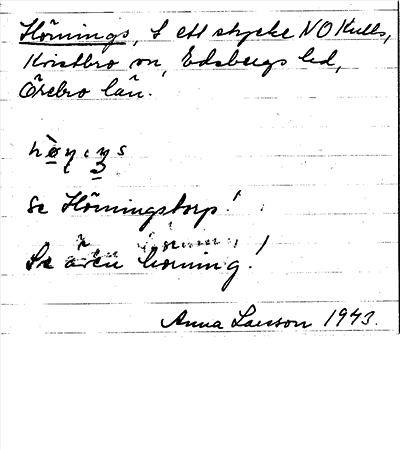 Hörnings, t ett stycke NO Kulls,
Kvistbro sn, Edsbergs hd,
Örebro län.
Se Hörningstorp!
Se även horning!
Anna Larsson 1943.